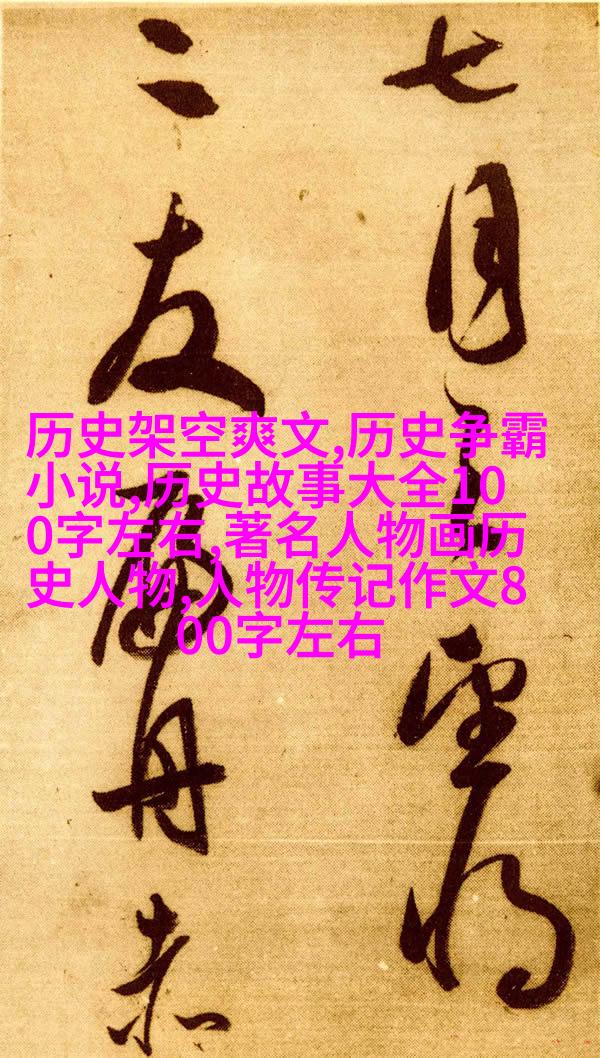 七月之望将
二友扁舟赤
历史架空爽文,历史争霸
小说,历史故事大全10
0字左右,著名人物画历
史人物,人物传记作文8
00字左右